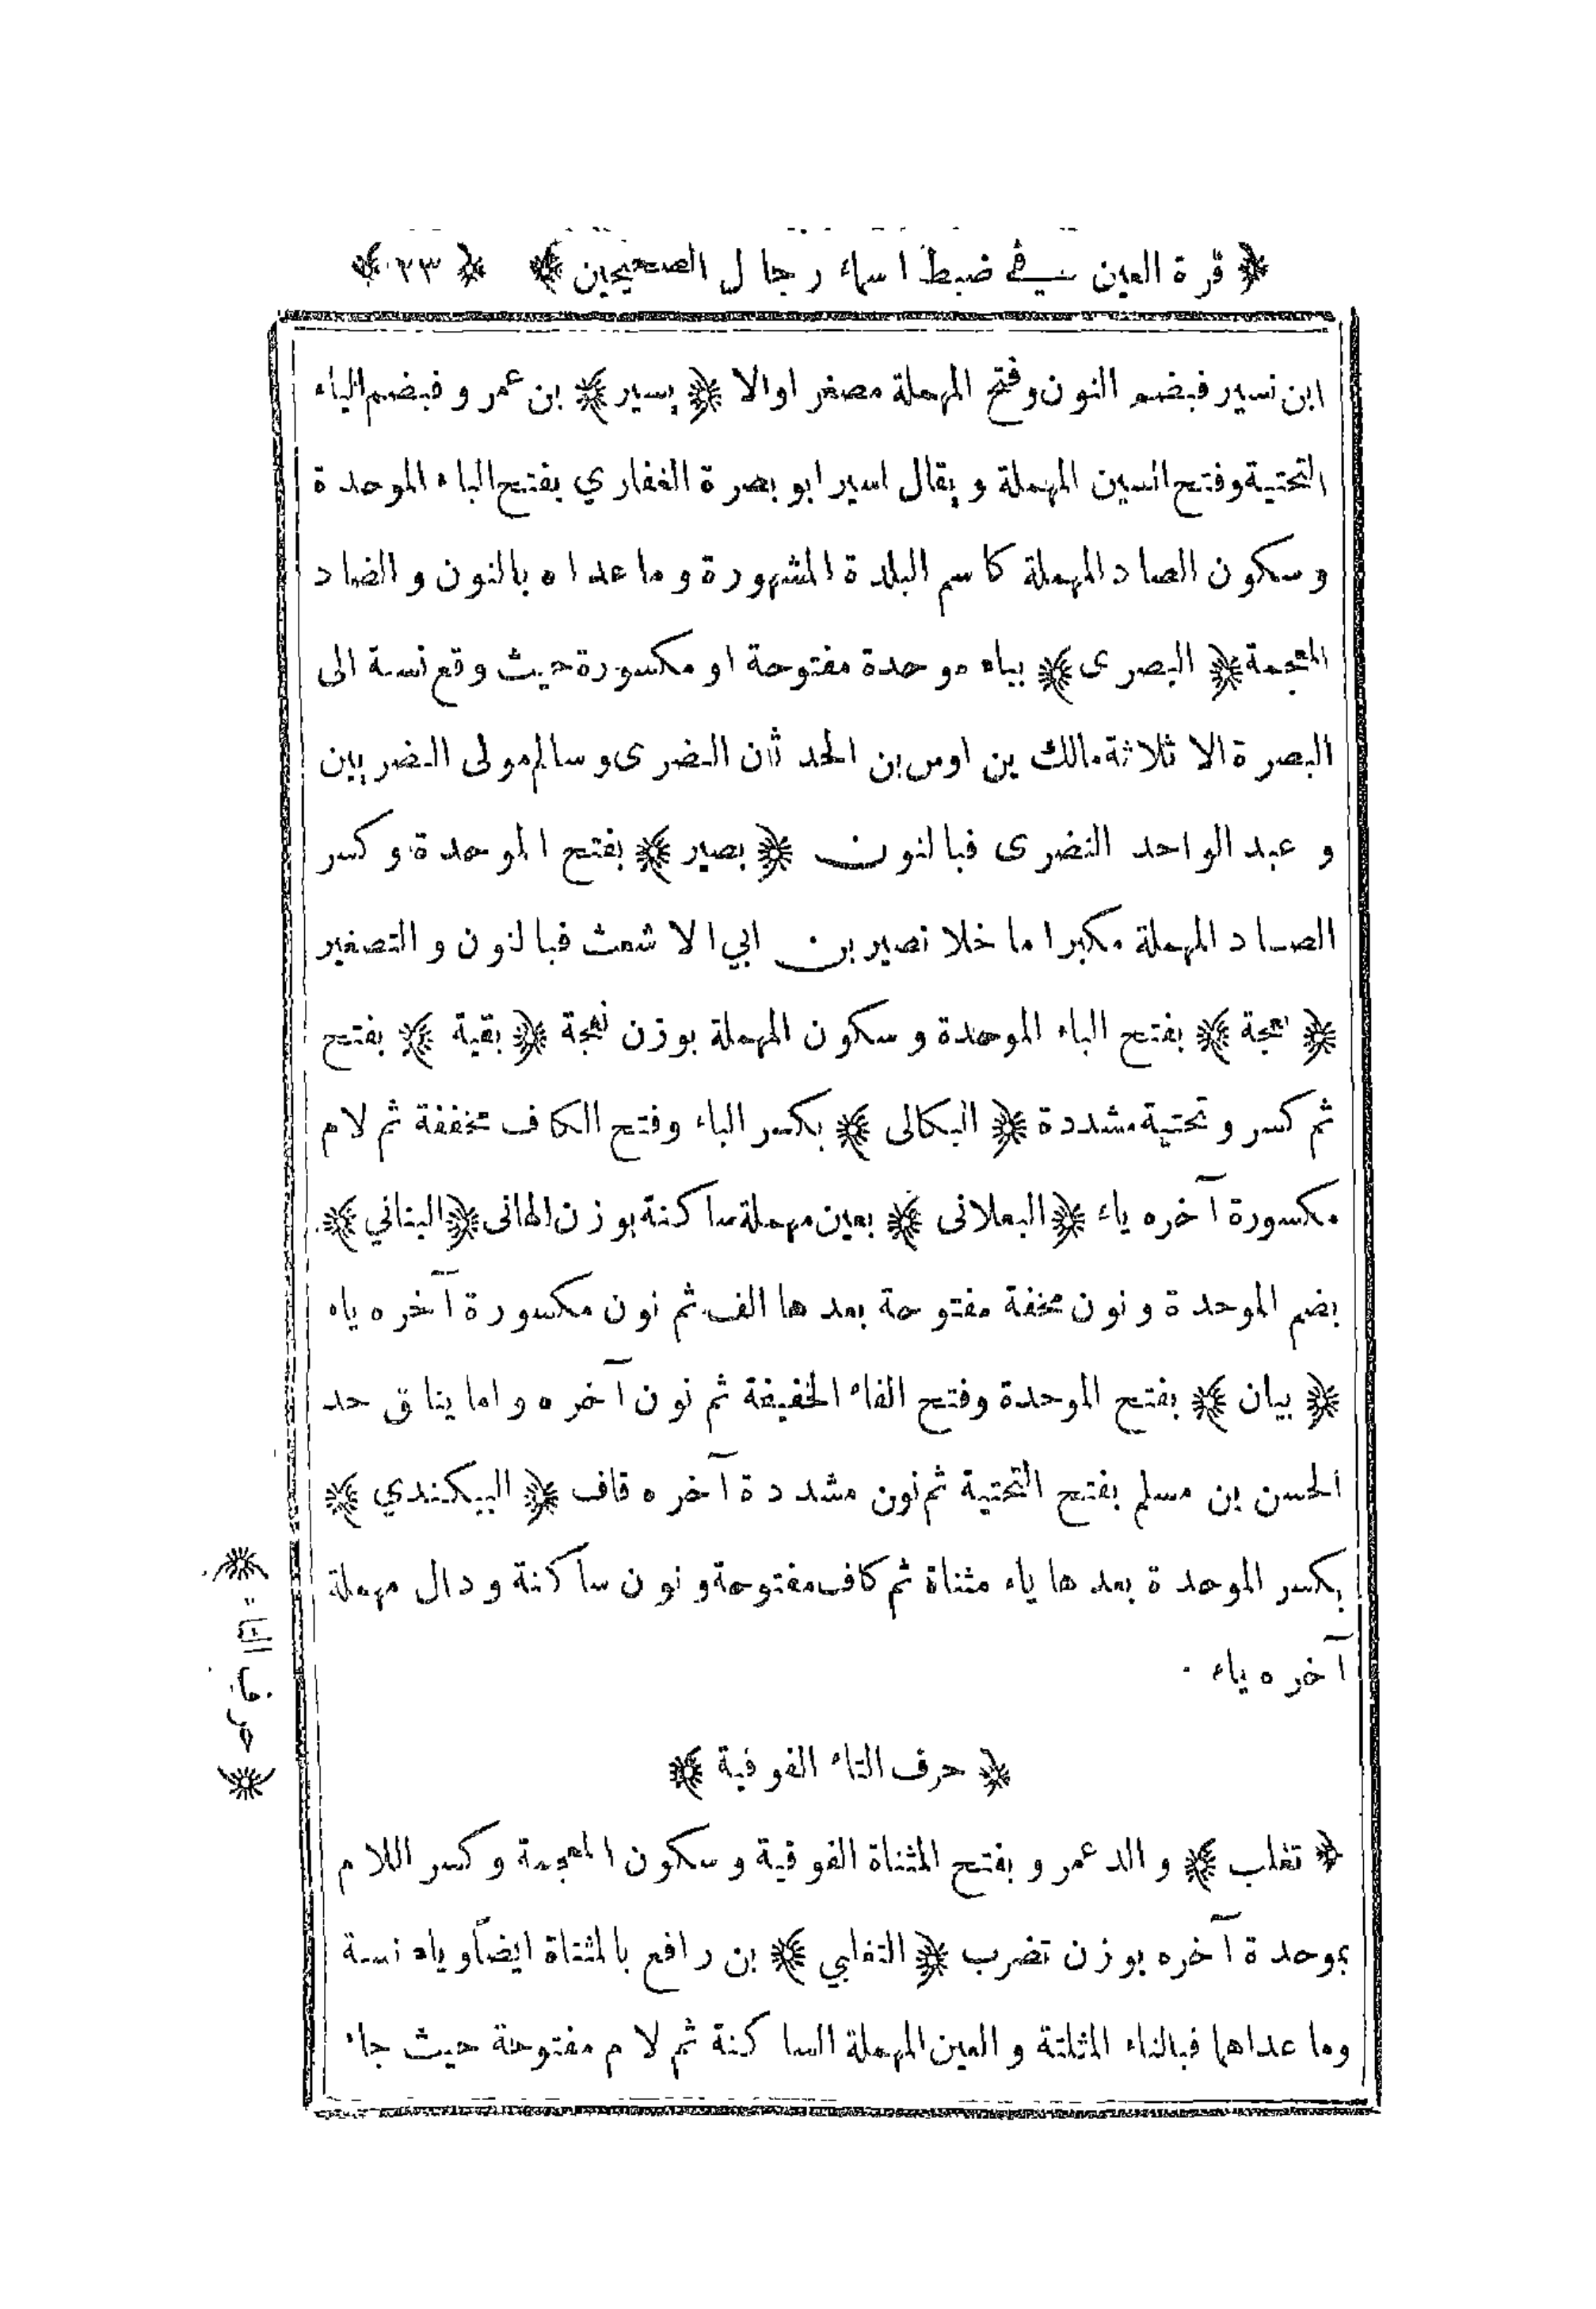 ﴿ قرة العين في ضبط اسماء رجال الصحيحين ﴾ ﴿ ٢٣ ﴾
ابن نسير فبضم النون وفتح المهملة مصغر اوالا ﴿ يسير ﴾ بن عمرو فبضم الياء
التحتية وفتح السين المهملة ويقال اسير ابو بصرة الغفاري بفتح الباء الموحدة
وسكون الصاد المهملة كاسم البلدة المشهورة وما عداه بالنون والضاد
المعجمة ﴿ البصرى ﴾ بباء موحدة مفتوحة او مكسورة حيث وقع نسبة الى
البصرة الا ثلاثة مالك بن اوس بن الحدثان النضرى وسالم مولى النضريين
و عبد الواحد النضرى فبالنون ﴿ بصير ﴾ بفتح الموحدة وكسر
الصاد المهملة مكبرا ما خلا نصير بن ابي الاشعث فبالنون والتصغير
﴿ بعجة ﴾ بفتح الباء الموحدة وسكون المهملة بوزن نعجة ﴿ بقية ﴾ بفتح
ثم كسر وتحتية مشددة ﴿ البكالى ﴾ بكسر الباء وفتح الكاف مخففة ثم لام
مكسورة آخره ياء ﴿ البعلانى ﴾ بعين مهملة ساكنة بوزن الهانى ﴿ البناني ﴾
بضم الموحدة ونون مخففة مفتوحة بعدها الف ثم نون مكسورة آخره ياء
﴿ بيان ﴾ بفتح الموحدة وفتح الفاء الخفيفة ثم نون آخره واما يناق جد
الحسن بن مسلم بفتح التحتية ثم نون مشددة آخره قاف ﴿ البيكندي ﴾
بكسر الموحدة بعدها ياء مثناة ثم كاف مفتوحة ونون ساكنة ودال مهملة
آخره ياء .
﴿ حرف التاء الفوقية ﴾
﴿ تغلب ﴾ والد عمرو بفتح المثناة الفوقية وسكون المعجمة وكسر اللام
بموحدة آخره بوزن تضرب ﴿ التغلبي ﴾ بن رافع بالمثناة ايضاً وياء نسبة
وما عداهما فبالثاء المثلثة والعين المهملة الساكنة ثم لام مفتوحة حيث جاء
﴿ حرف التاء ﴾